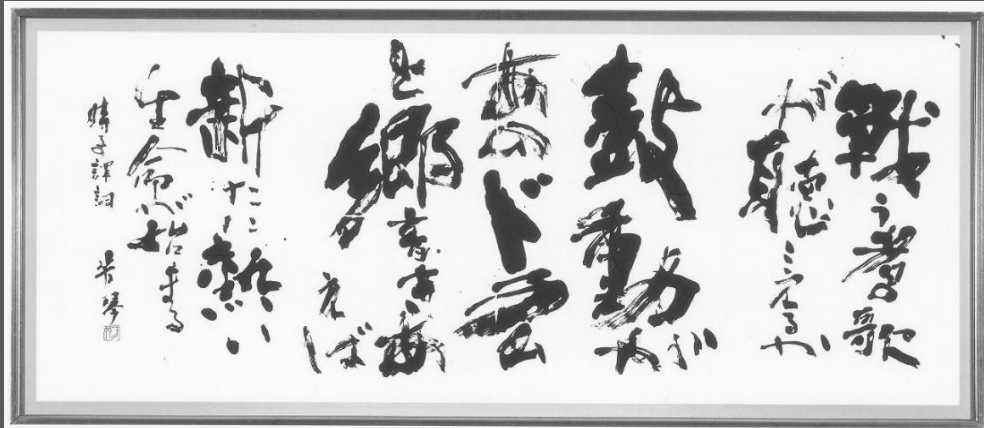 戦う者の歌
が聴こえるか
鼓動が
あのドラム
と響き合
えば
新たに熱い
生命が始まる
時子譯詞